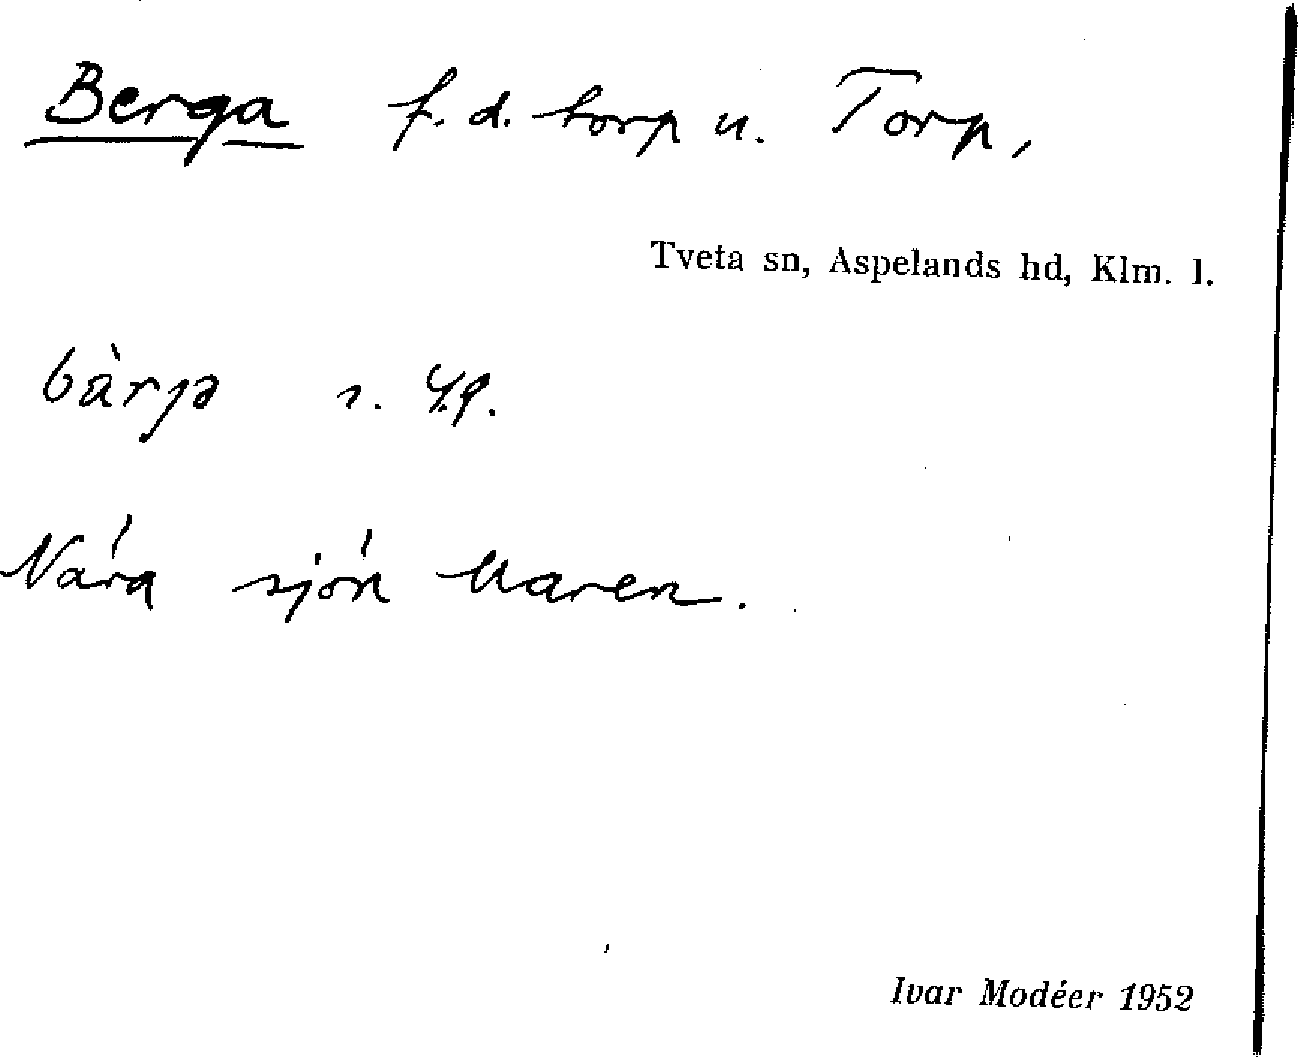 Berga f. d. torp u. Torp,
Tveta sn, Aspelands hd, Klm. l.
bàrja
Nära sjön Maren.
Ivar Modéer 1952